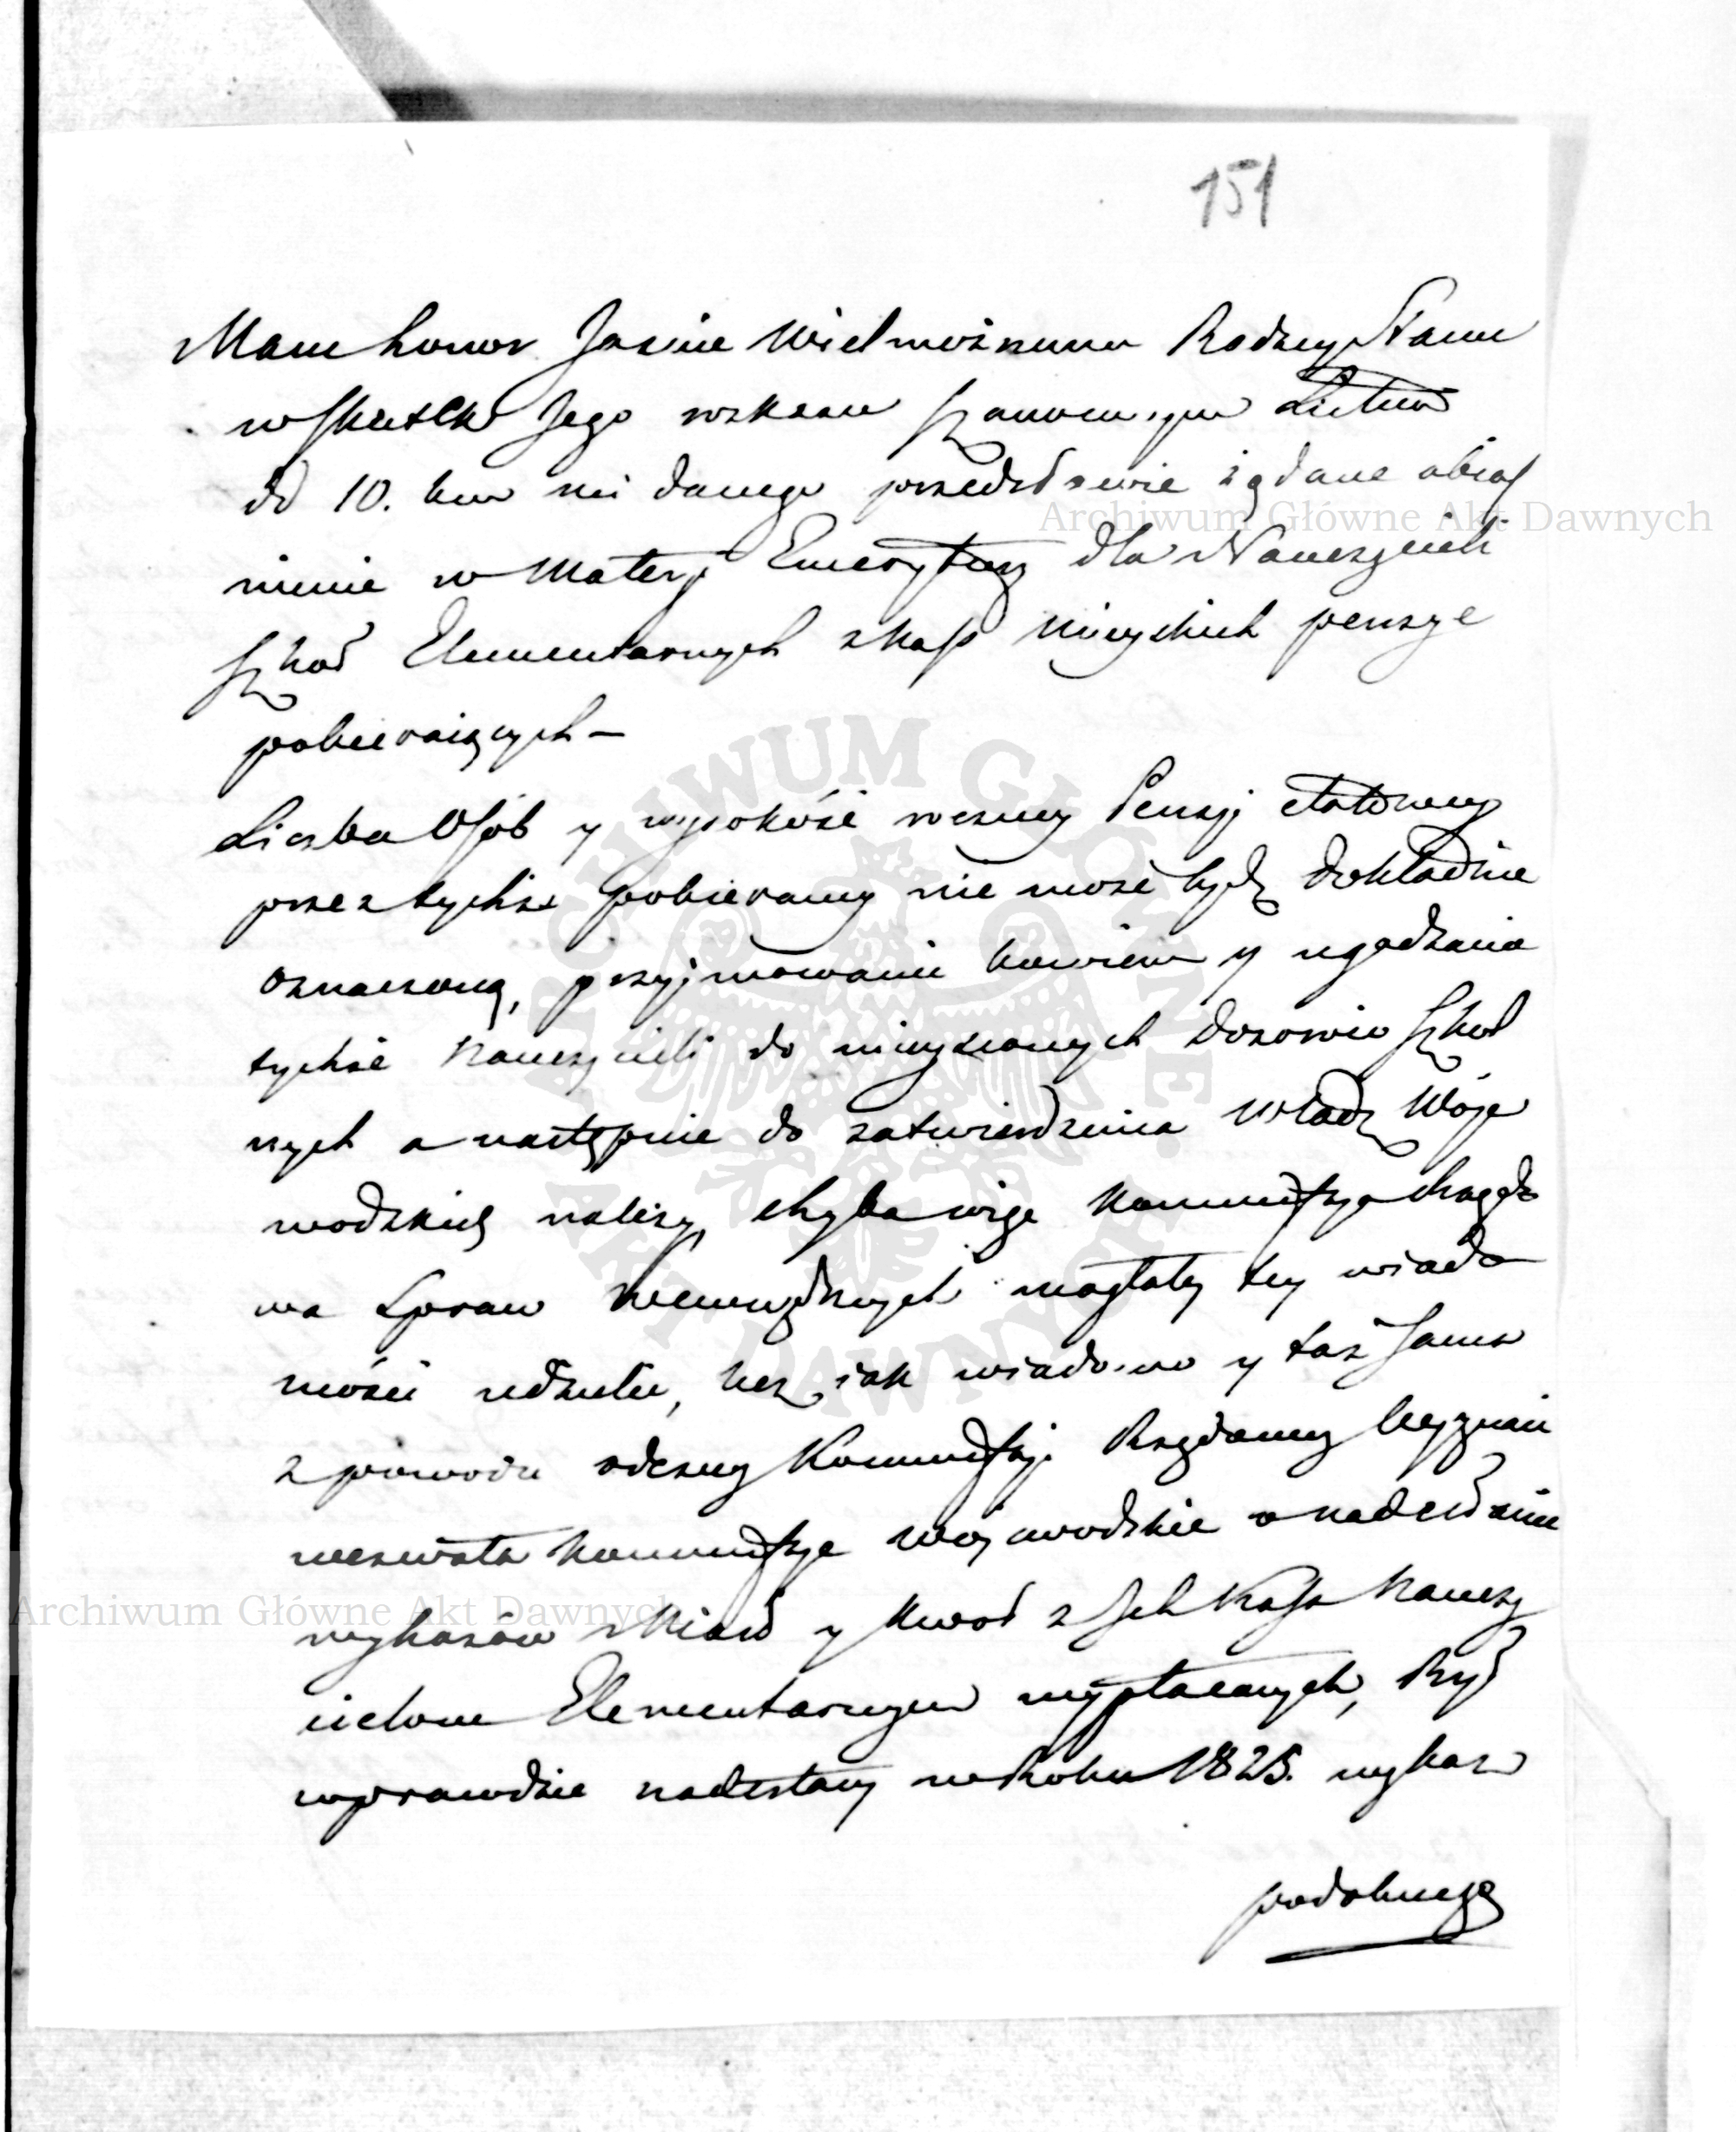 151
Mam honor Jaśnie Wielmożnemu Radzcy Stanu
w skutek Jego wskazu szanownym Listem
dd 10. bm mi danego przedstawić żądane obiaś
nienie w Materyi Emerytury dla Nauczycieli
Szkół Elementarnych z Kass Mieyskich pensye
pobieraiących –
Liczba Osób y wysokość roczney Pensyi etatowey
przez tychże pobieraney nie może bydź dokładnie
oznaczoną, przyjmowanie bowiem y ugodzenie
tychże Nauczycieli do mieyscowych Dozorów Szkol
nych a następnie do zatwierdzenia Władz Woje
wodzkich należy, chyba więc Kommissya Rządo
wa Spraw Wewnętrznych mogłaby tey wiado
mości udzielić, lecz jak wiadomo y taż sama
z powodu odezwy Kommissyi Rządowey Wyznań
wezwała Kommissye Wojewodzkie o nadesłanie
wykazów Miast y kwot z Ich Kass Nauczy
cielom Elementarnym wypłacanych, Był
wprawdzie nadesłany w Roku 1825. wykaz
podobnego
Archiwum Główne Akt Dawnych
Archiwum Główne Akt Dawnych
ARCHIWUM GŁÓWNE AKT DAWNYCH